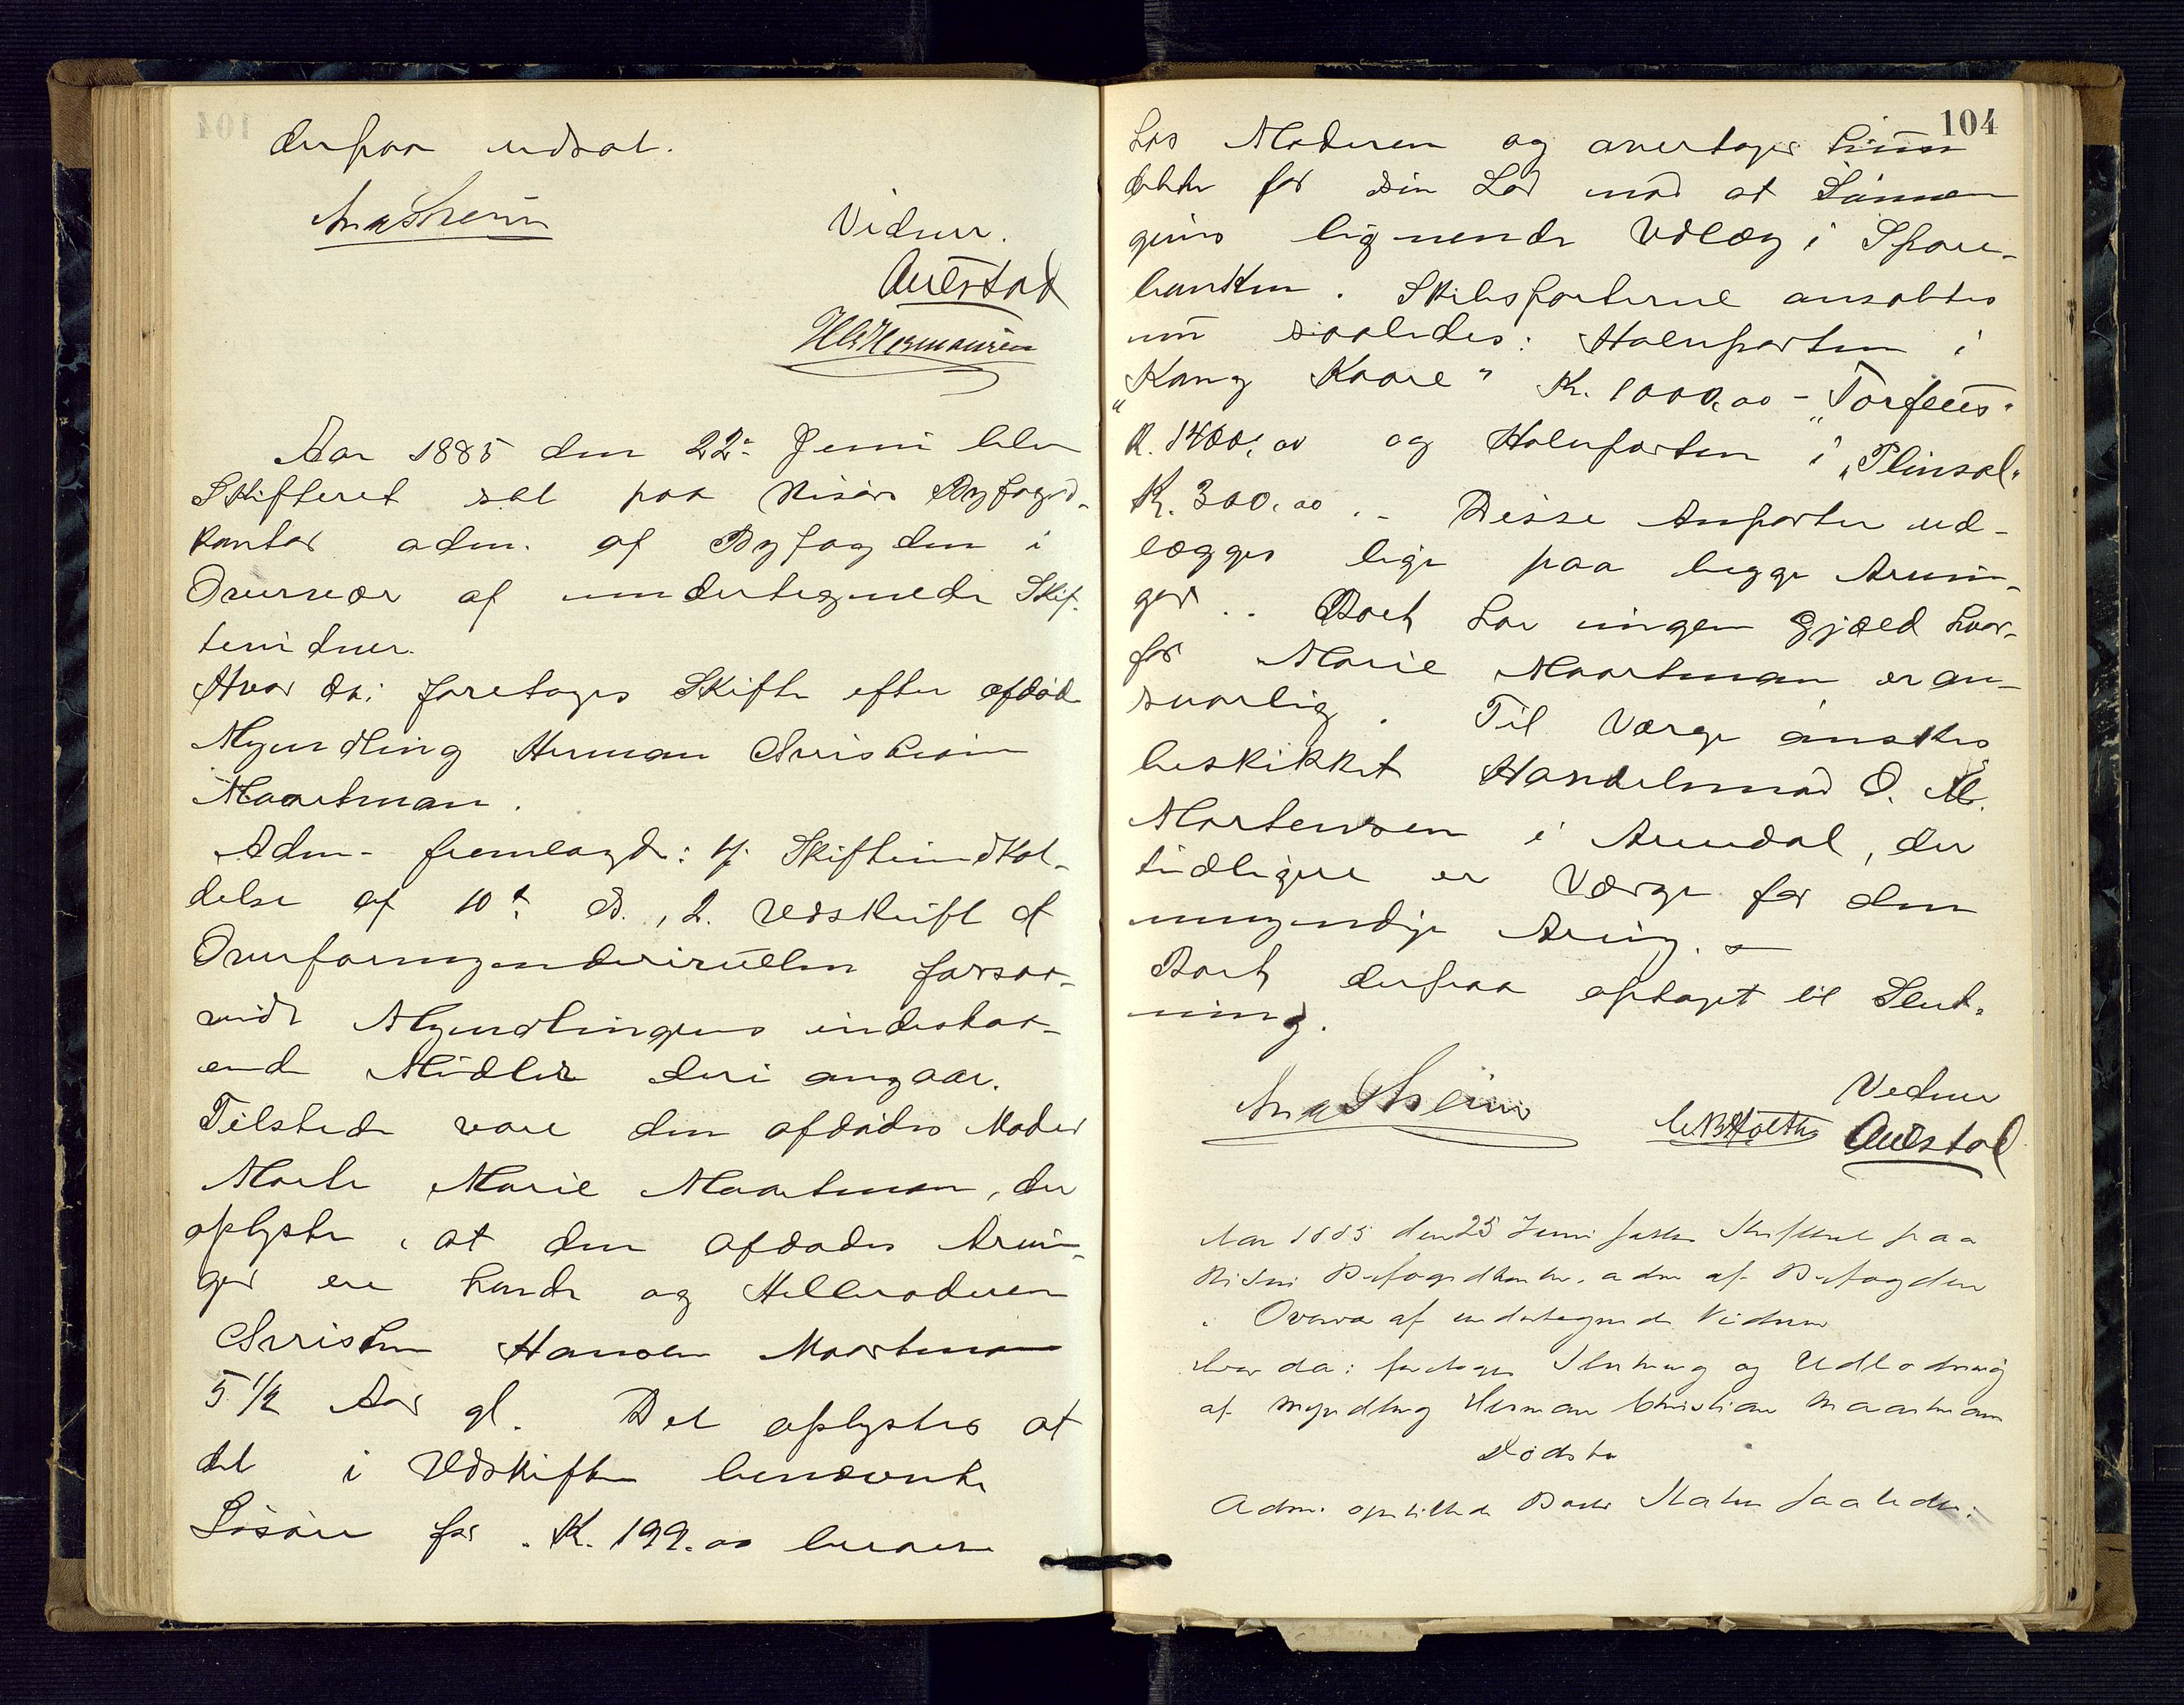 derpaa udsat.
Vidner.
Auestad
Aar 1885 den 22: Juni blev
Skifteret sat paa Risørs Byfogd-
kontor adm. af Byfogden i
Overvær af undertegnede Skif-
tevidner.
Hvor da: foretoges Skifte efter afdøde
Myndling Herman Christian
Maartman.
Adm. fremlagde: 1/. Skifteindkal-
delse af 10d. ds., 2. Udskrift af
Overformynderirullen forsaa-
vidt Myndlingens indestaa-
ende Midler deri angaar.
Tilstede vare den afdødes Moder
Marte Marie Maartman, der
oplyste, at den afdødes Arvin-
ger ere hende og Helbroderen
Christen Hansen Maartman
5 1/2 Aar gl. Det oplystes at
det i Udskriften benævnte
Løsøre for K. 199.00 beroer
104
hos Moderen og overtager hun
dette for sin Lod mod at Sønnen
gives lignende Udlæg i Spare-
banken. Skibsparterne ansattes
nu saaledes: Halvparten i
"Kong Kaare" K. 1000,00 - "Torfeus"
K. 1400,00 og Halvparten i "Plinsol"
K. 300,00. - Disse Anparter ud-
lægges lige paa begge Arvin-
ger. Boet har ingen Gjæld hvor-
for Marie Maartman er an-
svarlig. Til Værge ønskes
beskikket Handelsmand O. M.
Mortensen i Arendal, der
tidligere er Værge for den
umyndige Arving. -
Boet derpaa optaget til Slut-
ning.
Vidner
Auestad
Aar 1885 den 25 Juni sattes Skifteret paa
Risør Byfogdkontor, adm af Byfogden
i Overvær af undertegnede Vidner
hvor da: foretoges Slutning og Udlodning
af Myndling Herman Christian Maartmans
Dødsbo
Adm. opstillede Boets Status saaledes: